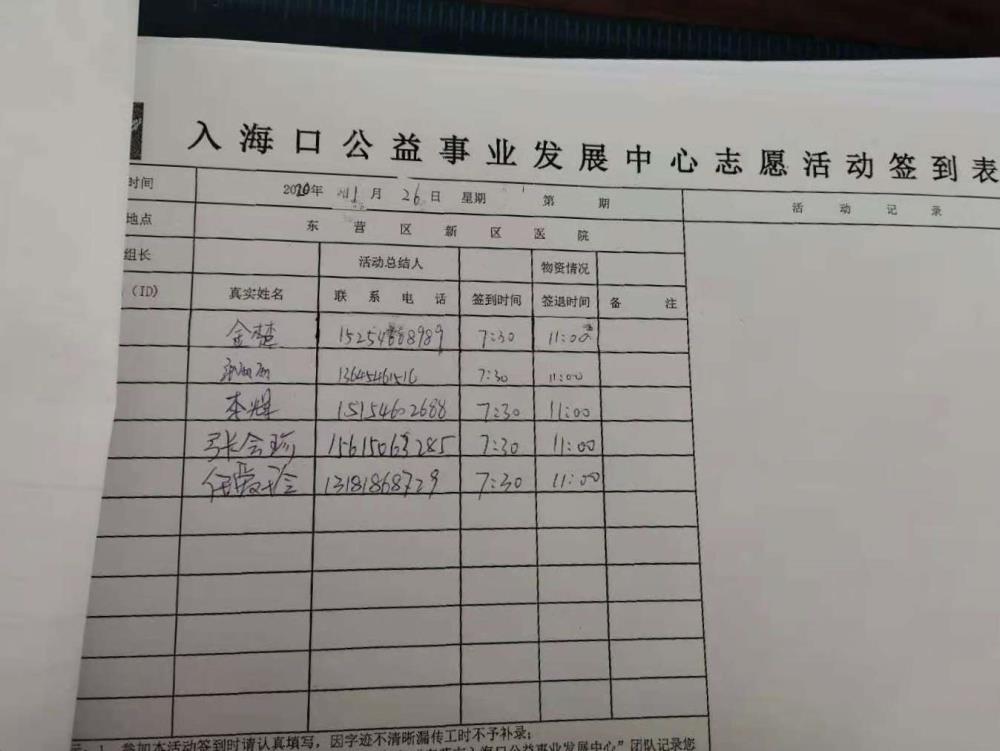 入海口公益事业发展中心志愿活动签到表
时间 2020年 11月 26日 星期 第 期 活动记录
地点 东营区新区医院
组长 活动总结人 物资情况
(ID) 真实姓名 联系电话 签到时间 签退时间 备注
金楚 7:30 11:00
13645461516 7:30 11:00
本辉 15154602688 7:30 11:00
张会珍 15615063285 7:30 11:00
任爱玲 13181868729 7:30 11:00
1、参加本活动签到时请认真填写，因字迹不清晰漏传工时不予补录；
入海口公益事业发展中心”团队记录您